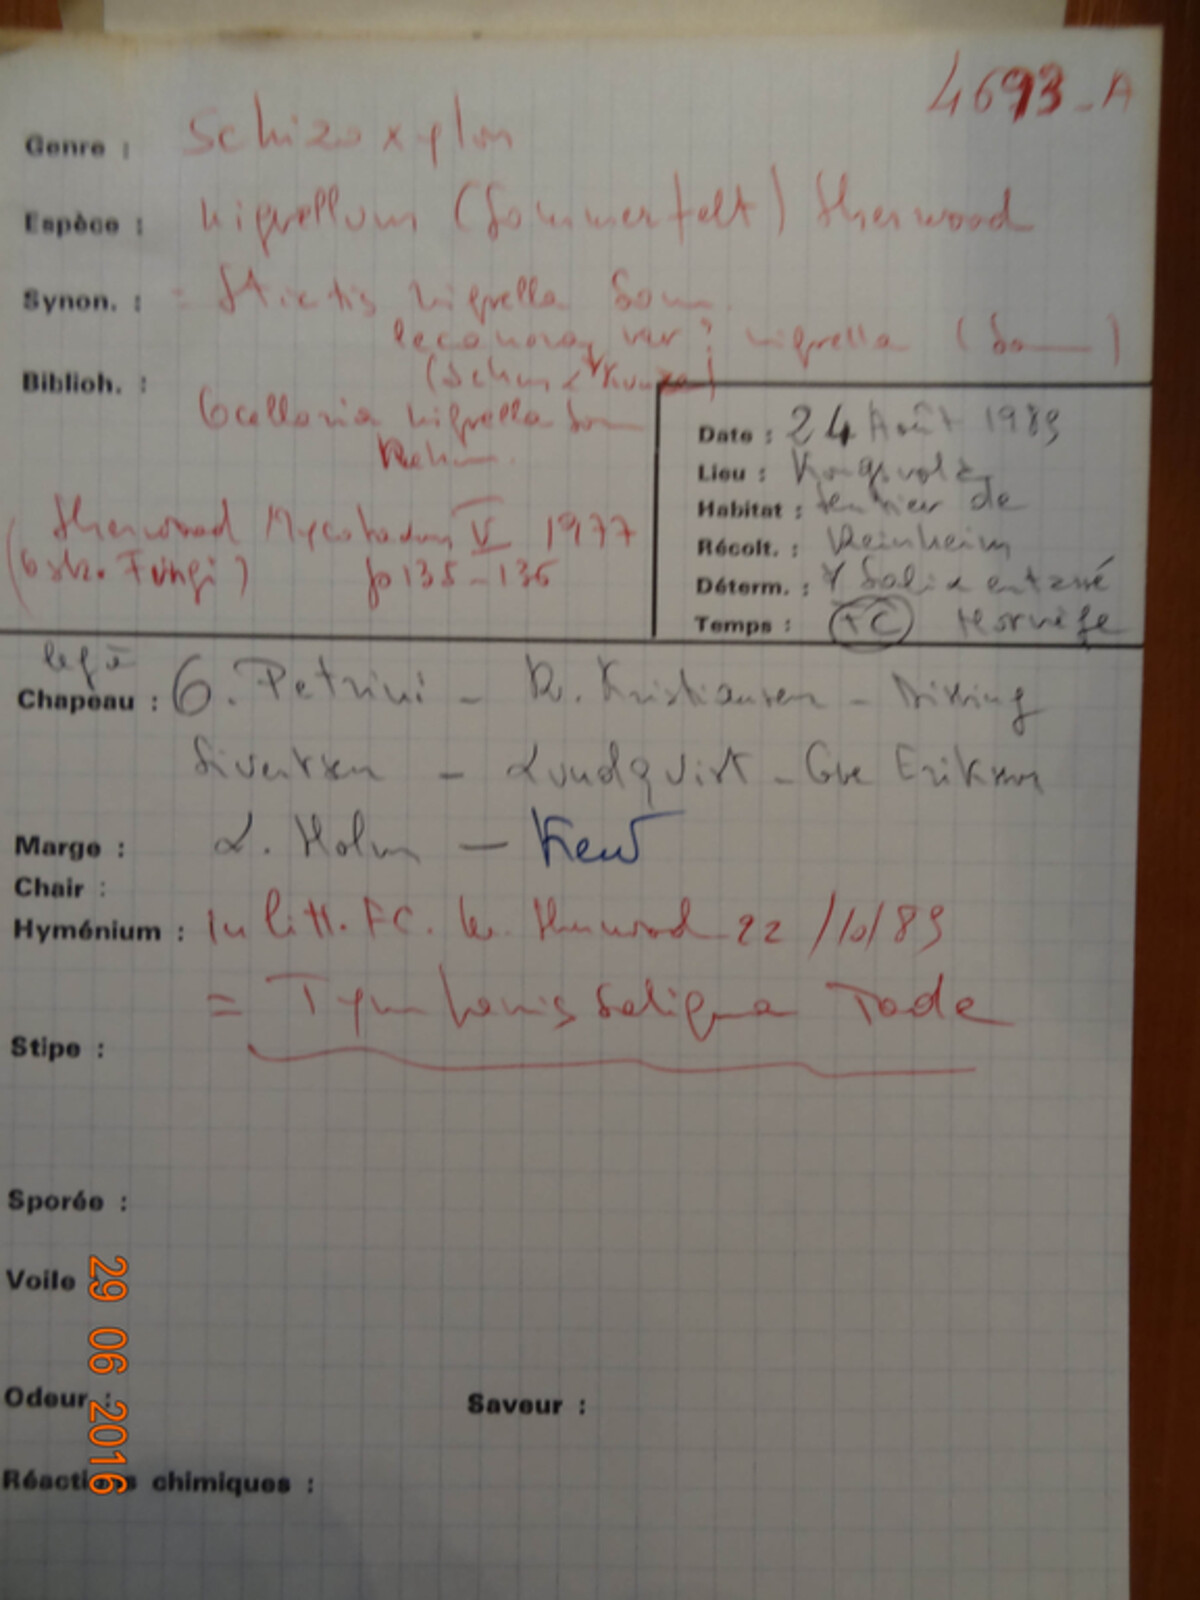 4693-A
Genre : Schizoxylon
Espèce : nigrellum (Sommerfelt) Sherwood
Synon. : = Stictis nigrella Som
lecanora var : nigrella (So )
(Schm & Kunze)
Biblioh. :
Ocellaria nigrella Som
Rehm.
Sherwood Mycotaxon V 1977
(Ostr. Fungi) p 135-136
Date : 24 Août 1989
Lieu : Kongsvold
Habitat : sentier de
Récolt. : Reinheim
Déterm. : Salix
Temps : FC Norvège
leg
Chapeau : O. Petrini - R. Kristiansen -
Sivertsen - Lundqvist - Ove Eriksson
Marge : L. Holm - Kew
Chair :
Hyménium : In litt. FC. Sherwood 22/10/89
= Tympanis saligna Tode
Stipe :
Sporée :
Voile
Odeur : Saveur :
Réactions chimiques :
29 06 2016